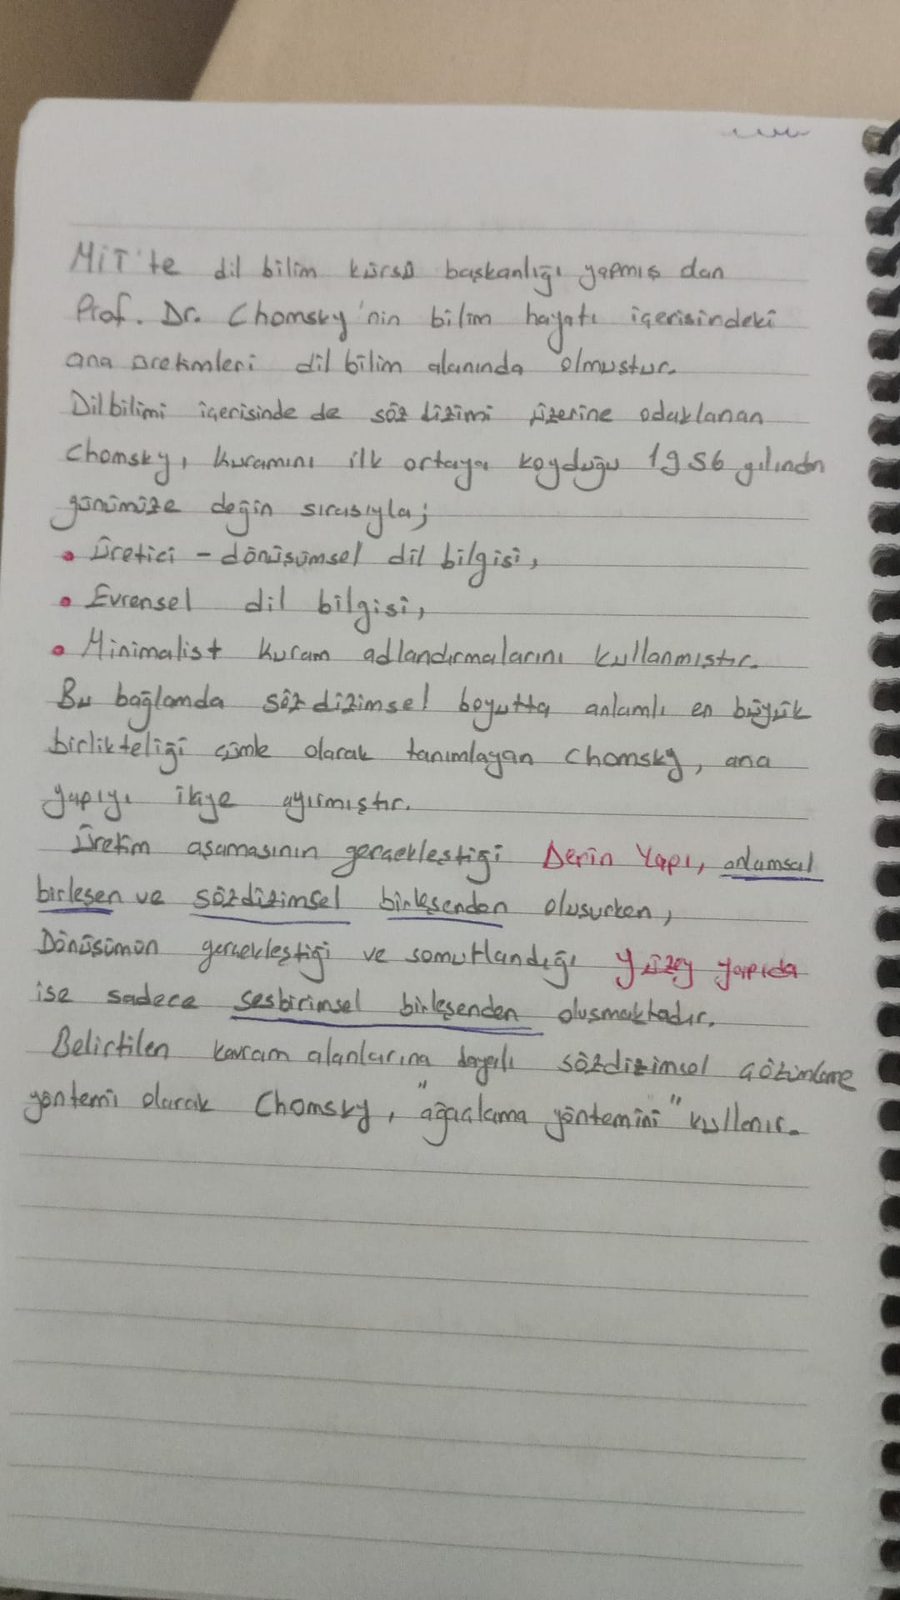 MİT'te dil bilim kürsü başkanlığı yapmış olan
Prof. Dr. Chomsky'nin bilim hayatı içerisindeki
ana üretimleri dil bilim alanında olmuştur.
Dilbilimi içerisinde de söz dizimi üzerine odaklanan
Chomsky, kuramını ilk ortaya koyduğu 1956 yılından
günümüze değin sırasıyla;
• Üretici - dönüşümsel dil bilgisi,
• Evrensel dil bilgisi,
• Minimalist kuram adlandırmalarını kullanmıştır.
Bu bağlamda sözdizimsel boyutta anlamlı en büyük
birlikteliği cümle olarak tanımlayan Chomsky, ana
yapıyı ikiye ayırmıştır.
Üretim aşamasının gerçekleştiği Derin Yapı, anlamsal
birleşen ve sözdizimsel birleşenden oluşurken,
Dönüşümün gerçekleştiği ve somutlandığı yüzey yapıda
ise sadece sesbirimsel birleşenden oluşmaktadır.
Belirtilen kavram alanlarına dayalı sözdizimsel çözümleme
yöntemi olarak Chomsky, "ağaçlama yöntemini" kullanır.